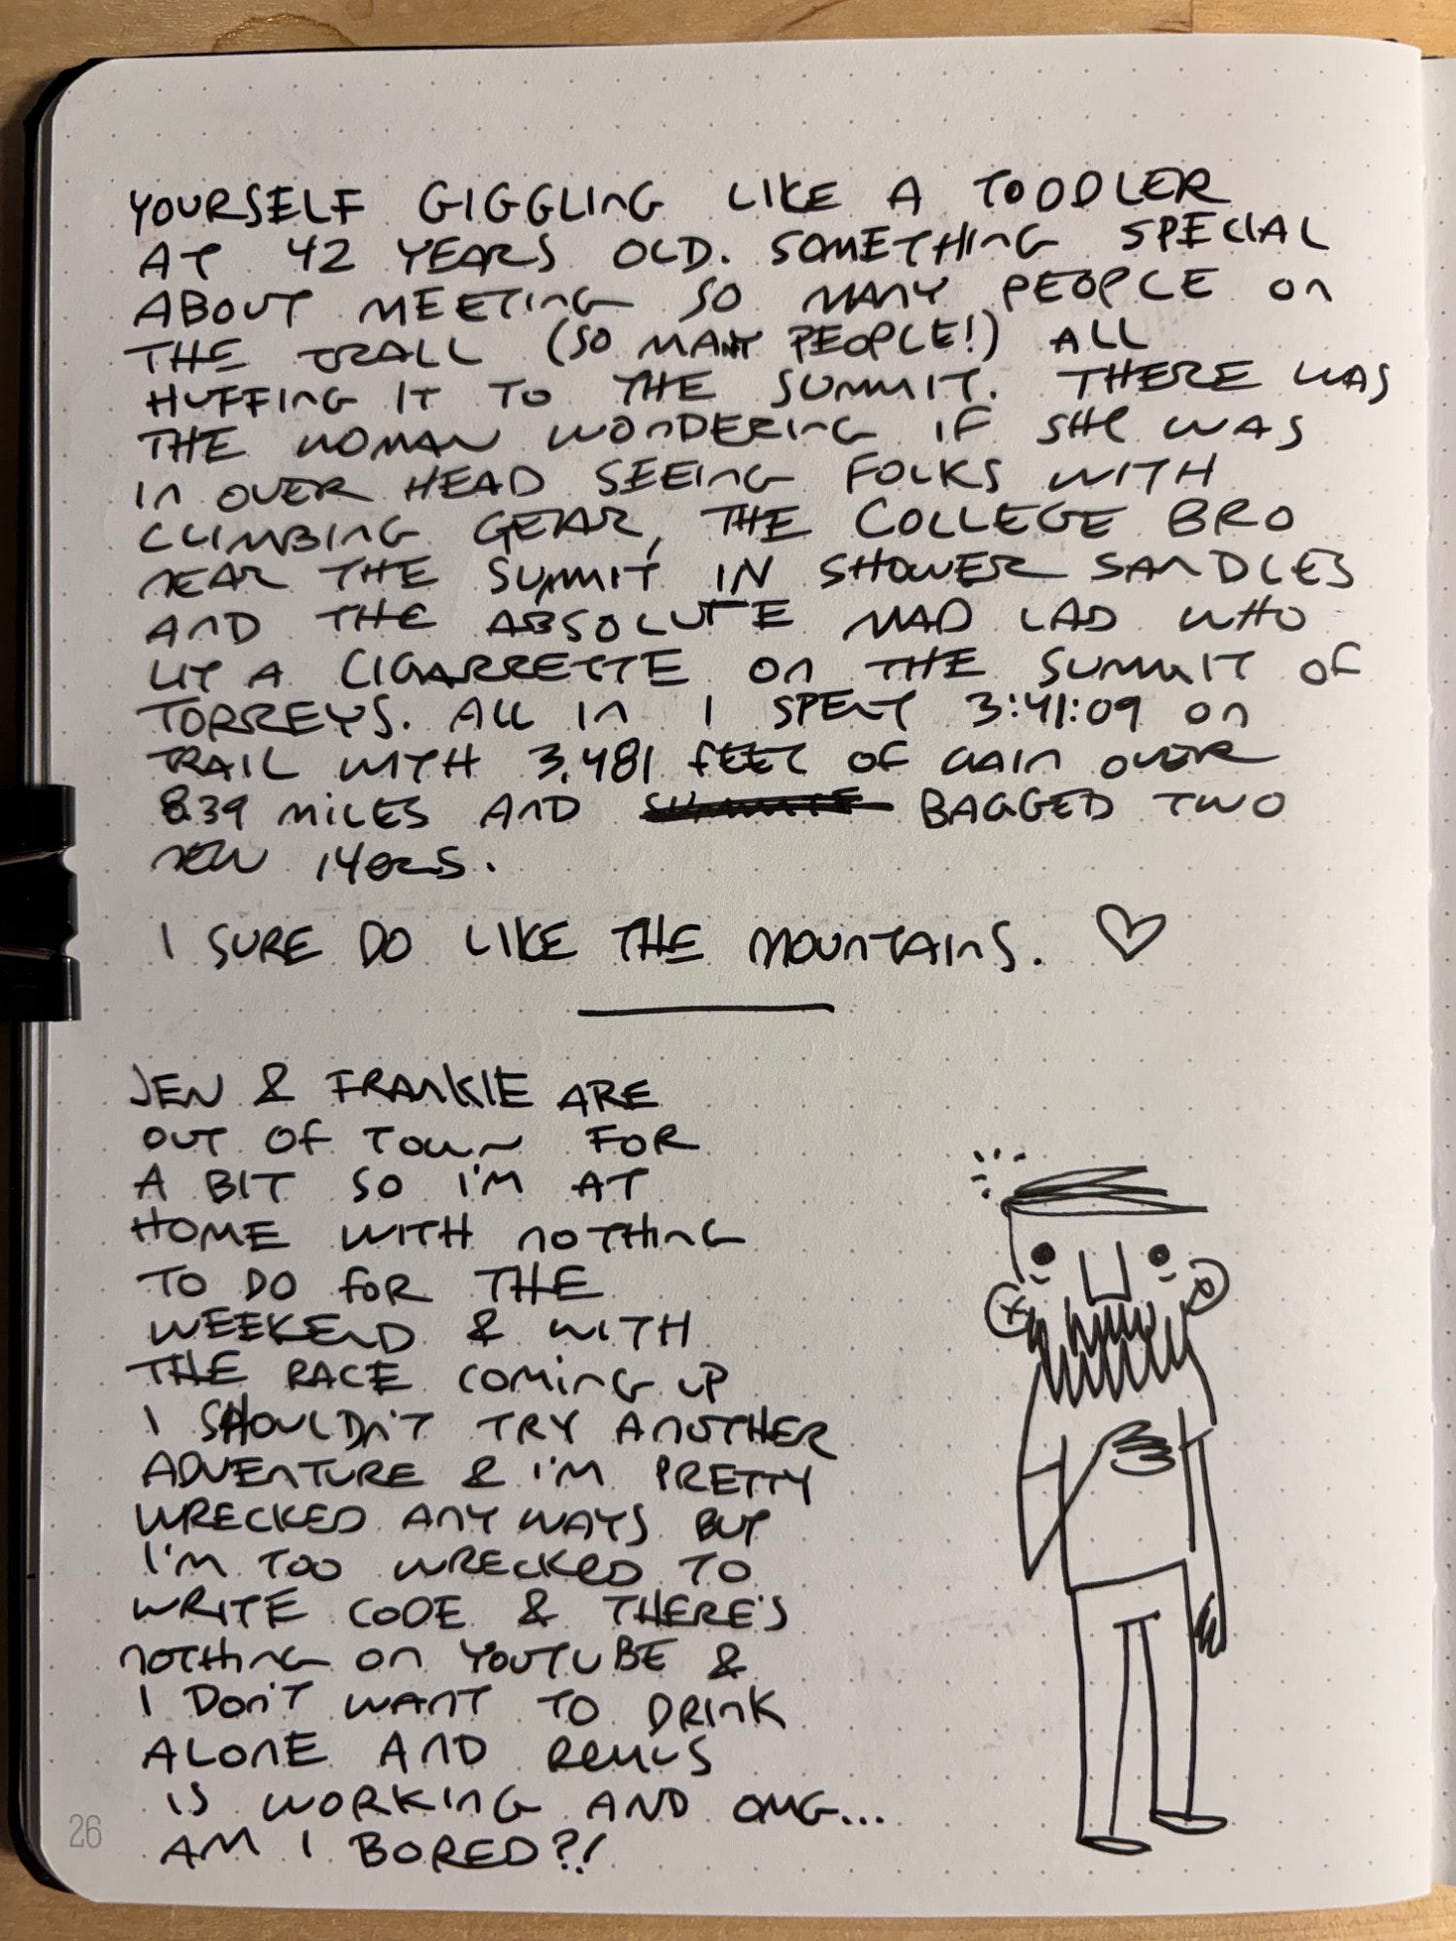 YOURSELF GIGGLING LIKE A TODDLER
AT 42 YEARS OLD. SOMETHING SPECIAL
ABOUT MEETING SO MANY PEOPLE ON
THE TRALL (SO MANY PEOPLE!) ALL
HUFFING IT TO THE SUMMIT. THERE WAS
THE WOMAN WONDERING IF SHE WAS
IN OVER HEAD SEEING FOLKS WITH
CLIMBING GEAR, THE COLLEGE BRO
NEAR THE SUMMIT IN SHOWER SANDLES
AND THE ABSOLUTE MAD LAD WHO
LIT A CIGARRETTE ON THE SUMMIT OF
TORREYS. ALL IN I SPENT 3:41:09 ON
TRAIL WITH 3,481 FEET OF GAIN OVER
8.39 MILES AND BAGGED TWO
NEW 14ERS.
I SURE DO LIKE THE MOUNTAINS. ♡
JEN & FRANKIE ARE
OUT OF TOWN FOR
A BIT SO I'M AT
HOME WITH NOTHING
TO DO FOR THE
WEEKEND & WITH
THE RACE COMING UP
I SHOULDN'T TRY ANOTHER
ADVENTURE & I'M PRETTY
WRECKED ANY WAYS BUT
I'M TOO WRECKED TO
WRITE CODE & THERE'S
NOTHING ON YOUTUBE &
I DON'T WANT TO DRINK
ALONE AND
IS WORKING AND OMG...
AM I BORED?!
26